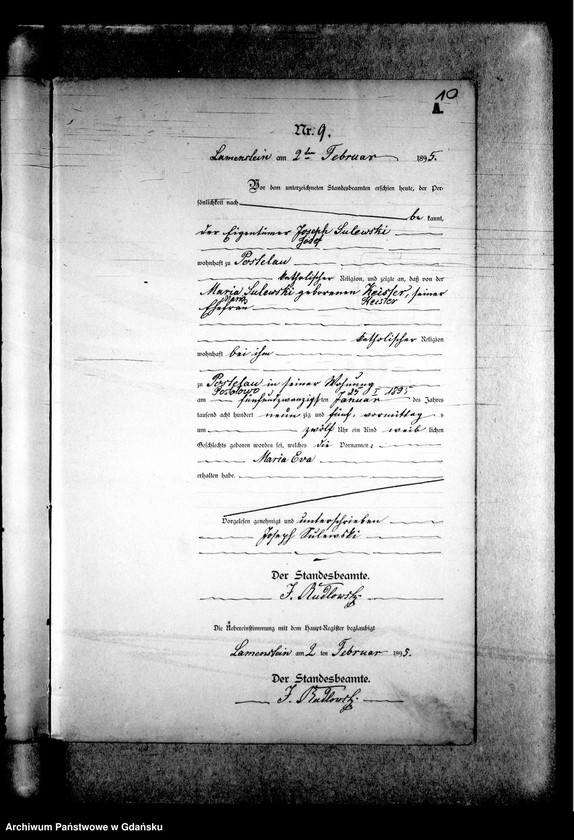 10
Nr. 9.
Lamenstein am 2ten Februar 1895.
Vor dem unterzeichneten Standesbeamten erschien heute, der Per-
sönlichkeit nach
be kannt,
der Eigentümer Joseph Sulewski
Józef
wohnhaft zu Postelau
katholischer Religion, und zeigte an, daß von der
Maria Sulewski geborenen Keister, seiner
Keister
Ehefrau
katholischer Religion
wohnhaft bei ihm
zu Postelau in seiner Wohnung
Postołowo 25 I 1895
am fünfundzwanzigsten Januar des Jahres
tausend acht hundert neun zig und fünf, vormittag s
um zwölf Uhr ein Kind weib lichen
Geschlechts geboren worden sei, welches die Vornamen:
Maria Eva
erhalten habe.
Vorgelesen genehmigt und unterschrieben
Joseph Sulewski
Der Standesbeamte.
J. Rudlowsky.
Die Uebereinstimmung mit dem Haupt-Register beglaubigt
Lamenstein am 2 ten Februar 1895.
Der Standesbeamte.
J. Rudlowsky.
Archiwum Państwowe w Gdańsku